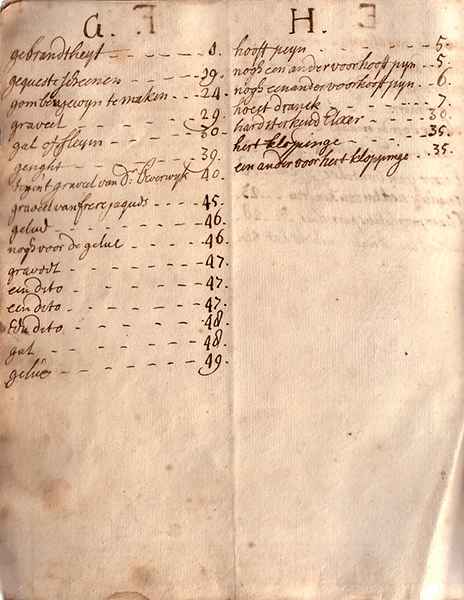 G.
gebrandtheyt - 8.
gequeste scheenen - 29.
gom benjewyn te maken - 24.
graveel - 29.
gal of sleym - 30.
39.
graveel van Dr. Beverwyk - 40.
graveel van frere jaquds - 45.
gelud - 46.
nogh voor de gelue - 46.
graveel - 47.
een dito - 47.
een dito - 47.
een dito - 48.
gal - 48.
gelue - 49.
H.
hooft peyn - 5.
nogh een ander voor hooft pyn - 5.
nogh een ander voor hooft pyn - 6.
hoest dranck - 7.
30.
hert kloppinge - 35.
een ander voor hert kloppinge - 35.